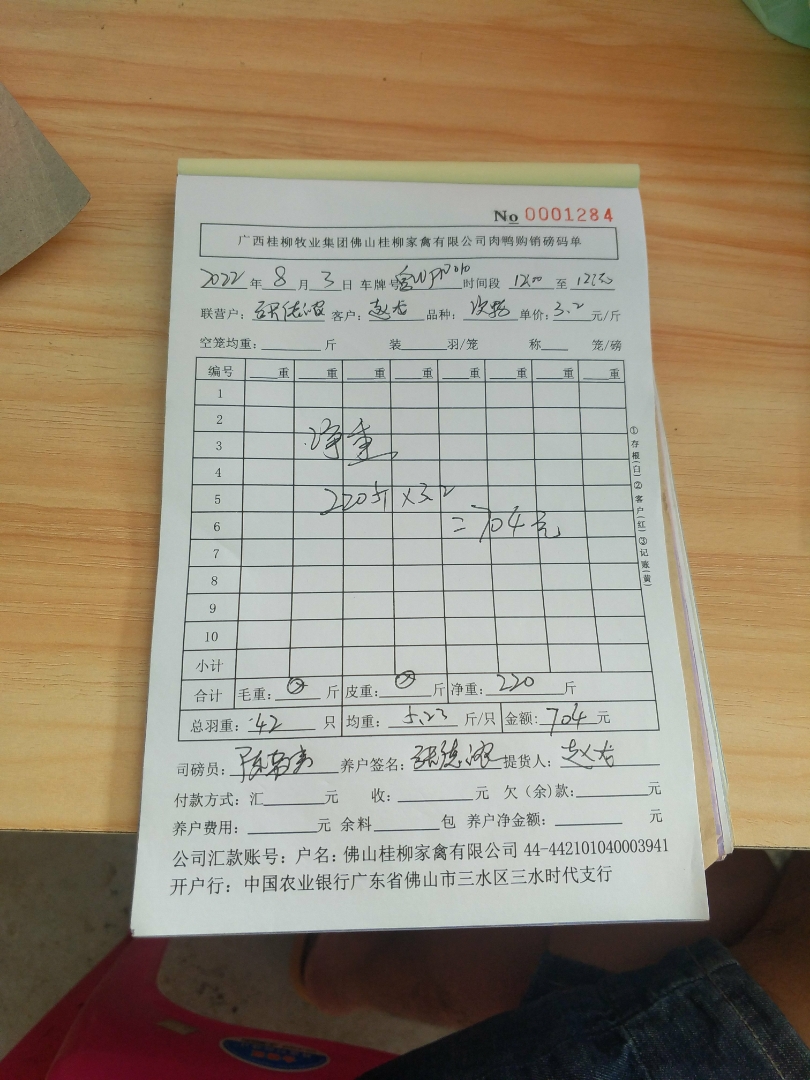 No 0001284
广西桂柳牧业集团佛山桂柳家禽有限公司肉鸭购销磅码单
2022年8月3日 车牌号 时间段 12:00 至
联营户: 客户:赵龙 品种: 单价:3.2元/斤
空笼均重: 斤 装 羽/笼 称 笼/磅
编号 重 重 重 重 重 重 重 重
1
2
3 净重
4
5 220斤×3.2
6 =704元
7
8
9
10
小计
合计 毛重: 斤 皮重: 斤 净重:220斤
总羽重:42只 均重:5.23斤/只 金额:704元
司磅员: 养户签名: 提货人:赵龙
付款方式:汇 元 收: 元 欠(余)款: 元
养户费用: 元 余料 包 养户净金额: 元
公司汇款账号:户名:佛山桂柳家禽有限公司 44-442101040003941
开户行:中国农业银行广东省佛山市三水区三水时代支行
①存根(白)②客户(红)③记账(黄)